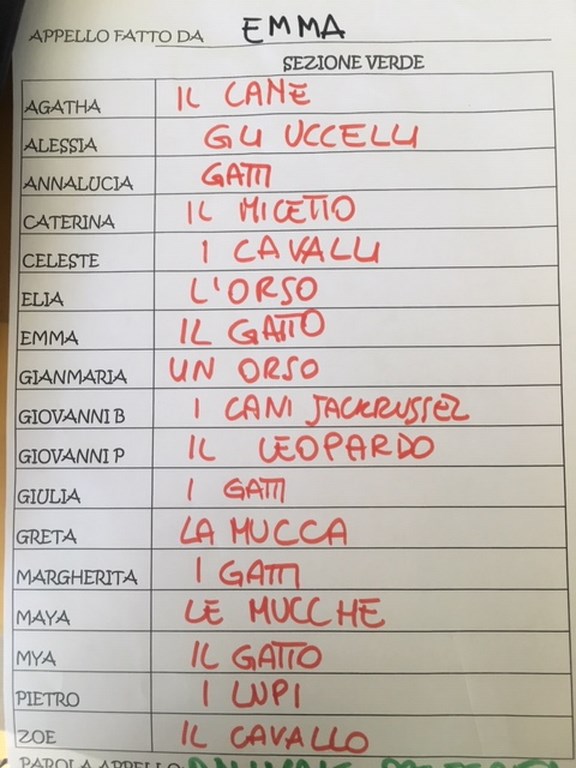 APPELLO FATTO DA EMMA
SEZIONE VERDE
AGATHA IL CANE
ALESSIA GLI UCCELLI
ANNALUCIA GATTI
CATERINA IL MICETTO
CELESTE I CAVALLI
ELIA L'ORSO
EMMA IL GATTO
GIANMARIA UN ORSO
GIOVANNI B I CANI JACKRUSSEL
GIOVANNI P IL LEOPARDO
GIULIA I GATTI
GRETA LA MUCCA
MARGHERITA I GATTI
MAYA LE MUCCHE
MYA IL GATTO
PIETRO I LUPI
ZOE IL CAVALLO
PAROLA APPELLO: